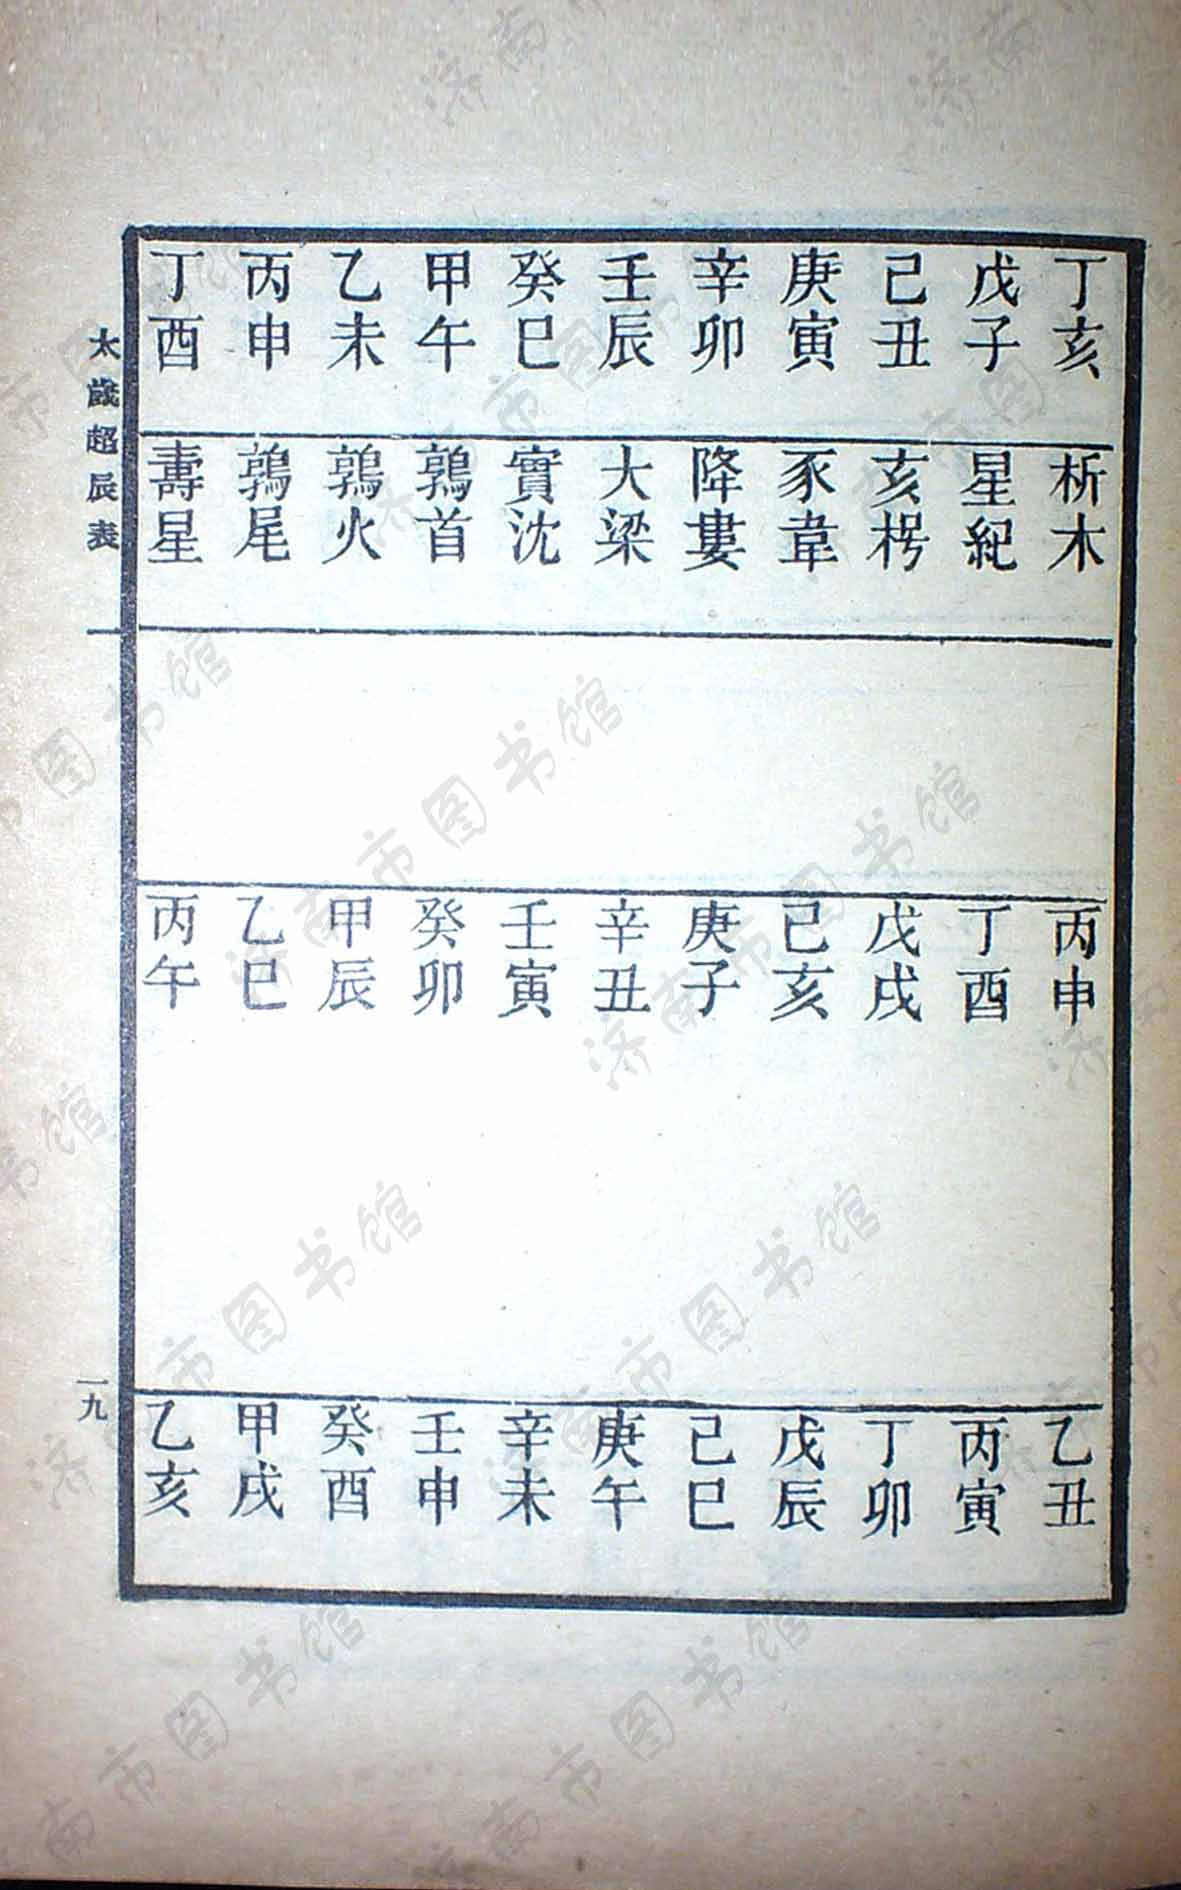 丁亥 析木 丙申 乙丑
戊子 星紀 丁酉 丙寅
己丑 亥枵 戊戌 丁卯
庚寅 豕韋 己亥 戊辰
辛卯 降婁 庚子 己巳
壬辰 大梁 辛丑 庚午
癸巳 實沈 壬寅 辛未
甲午 鶉首 癸卯 壬申
乙未 鶉火 甲辰 癸酉
丙申 鶉尾 乙巳 甲戌
丁酉 壽星 丙午 乙亥
太歲超辰表 一 一九
济南市图书馆